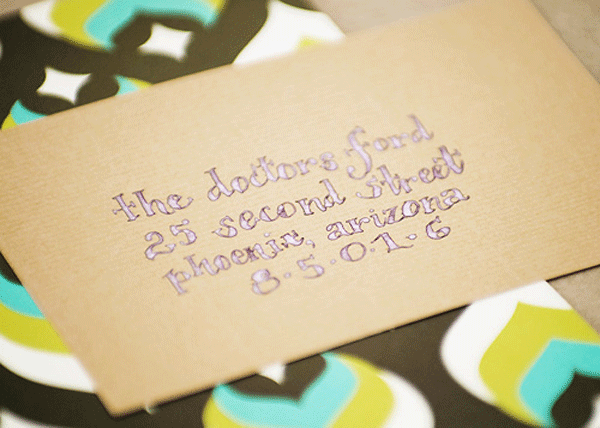 the doctors ford
25 second street
phoenix, arizona
8·5·0·1·6